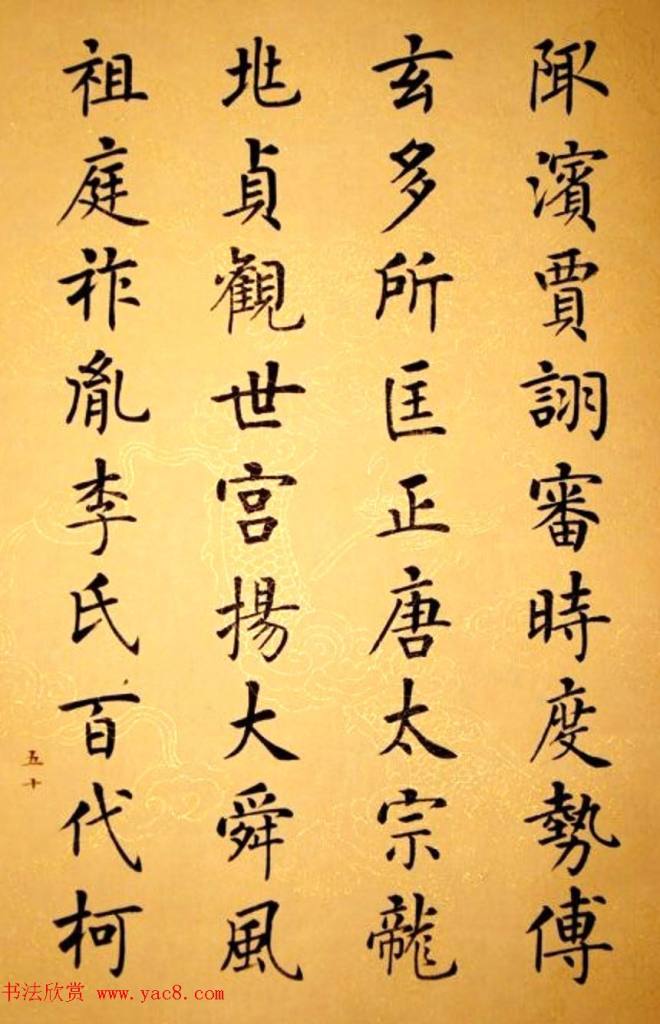 陬濱賈詡審時度勢傅
玄多所匡正唐太宗龍
貞觀世宮揚大舜風
祖庭祚胤李氏百代柯
五十
书法欣赏 www.yac8.com